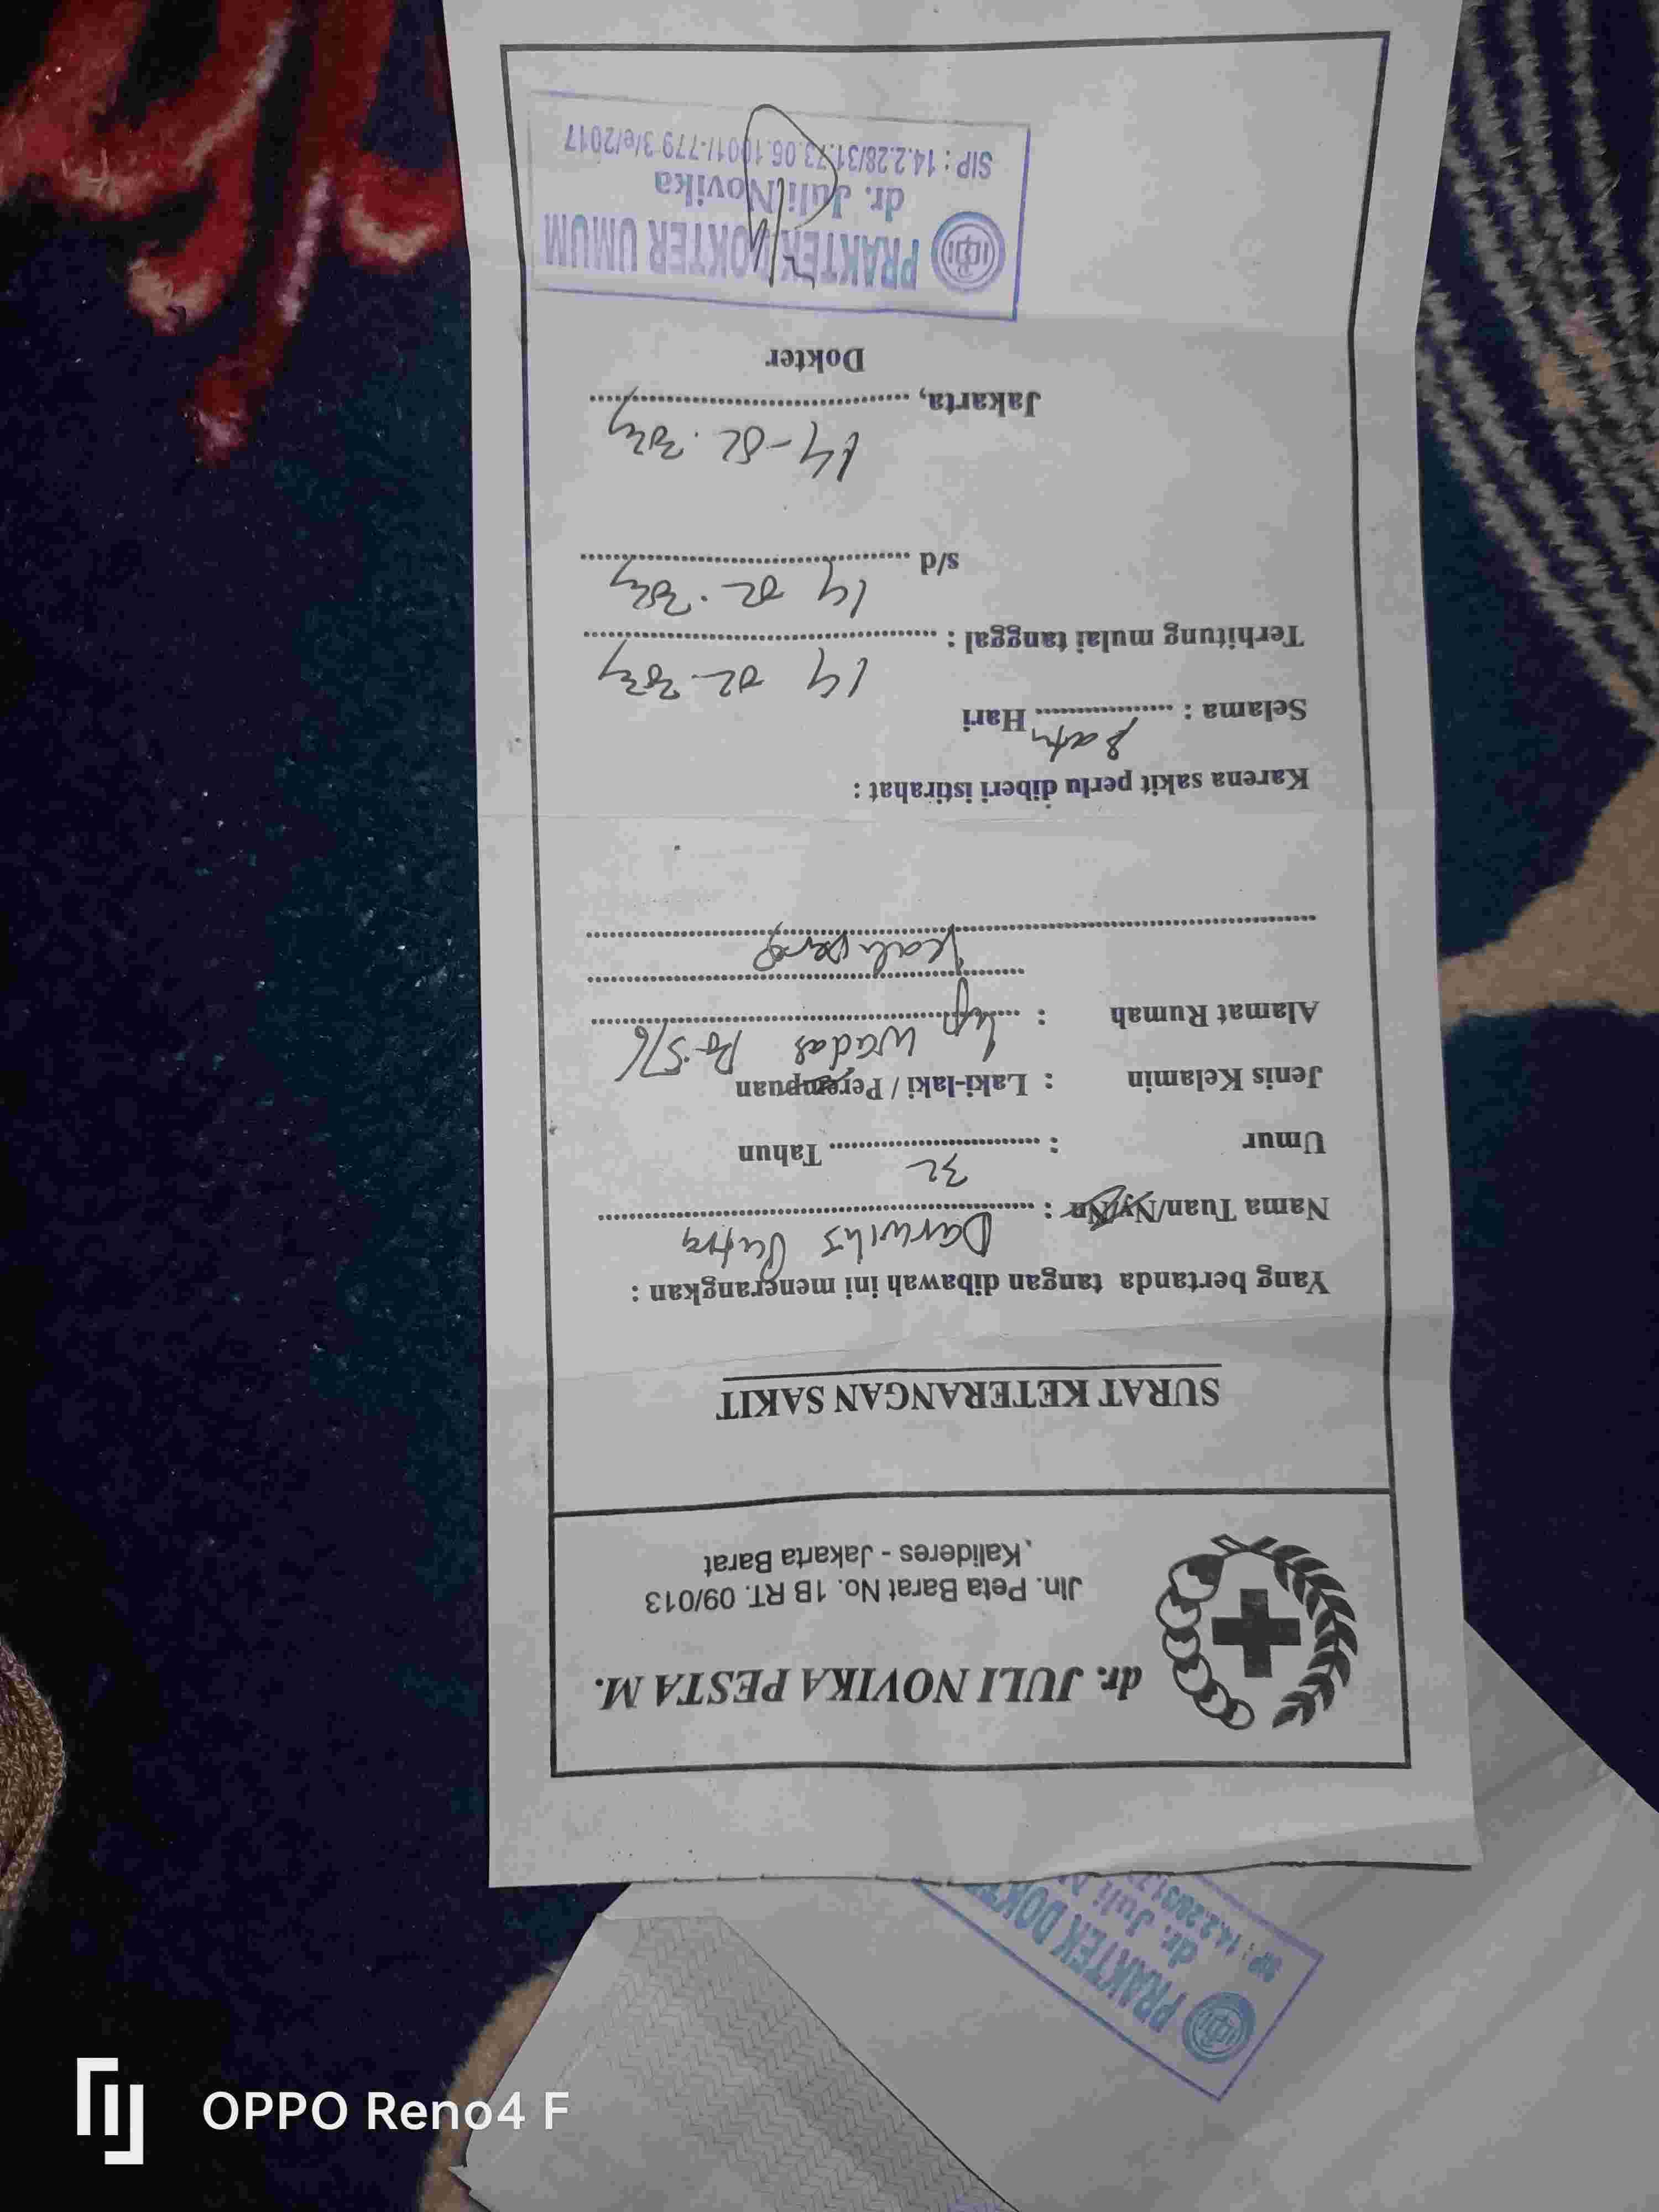 dr. JULI NOVIKA PESTA M.
Jln. Peta Barat No. 1B RT. 09/013
,Kalideres - Jakarta Barat
SURAT KETERANGAN SAKIT
Yang bertanda tangan dibawah ini menerangkan :
Nama Tuan/Ny/Nn : Darwins Putra
Umur : 32 Tahun
Jenis Kelamin : Laki-laki / Perempuan
Alamat Rumah : Wadas 5/6
Karena sakit perlu diberi istirahat :
Selama : Satu Hari
Terhitung mulai tanggal : 14 02
s/d 14 02
Jakarta, 14-02
Dokter
PRAKTEK DOKTER UMUM
dr. Juli Novika
SIP : 14.2.28/31.73.06.1001/-779.3/e/2017
PRAKTEK DOKT
dr. Juli
OPPO Reno4 F